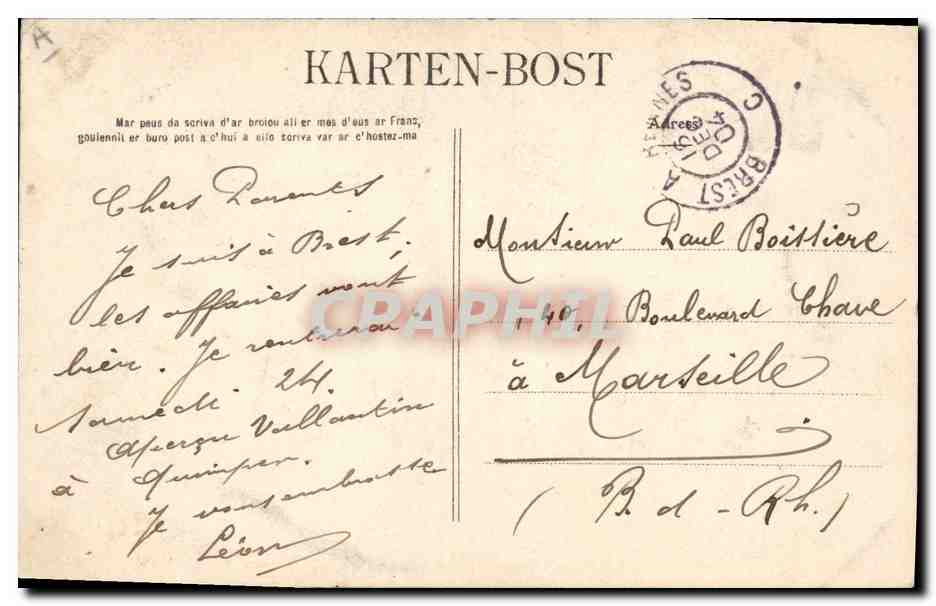 A
KARTEN-BOST
Mar peus da scriva d'ar broiou all er mes d'eus ar Franz,
goulennit er buro post a c'hui a eilo scriva var ar c'hostez-ma
Chers Parents
Je suis à Brest,
les affaires vont
bien. Je rentrerai
Samedi 24.
Aperçu Vallantin
à Quimper.
Je vous embrasse
Léon
RENNES A BREST C
15
DEC
04
Adresse
Monsieur Paul Boissière
, 40, Boulevard Chave
à Marseille
(B. d - Rh.)
CPARHIL